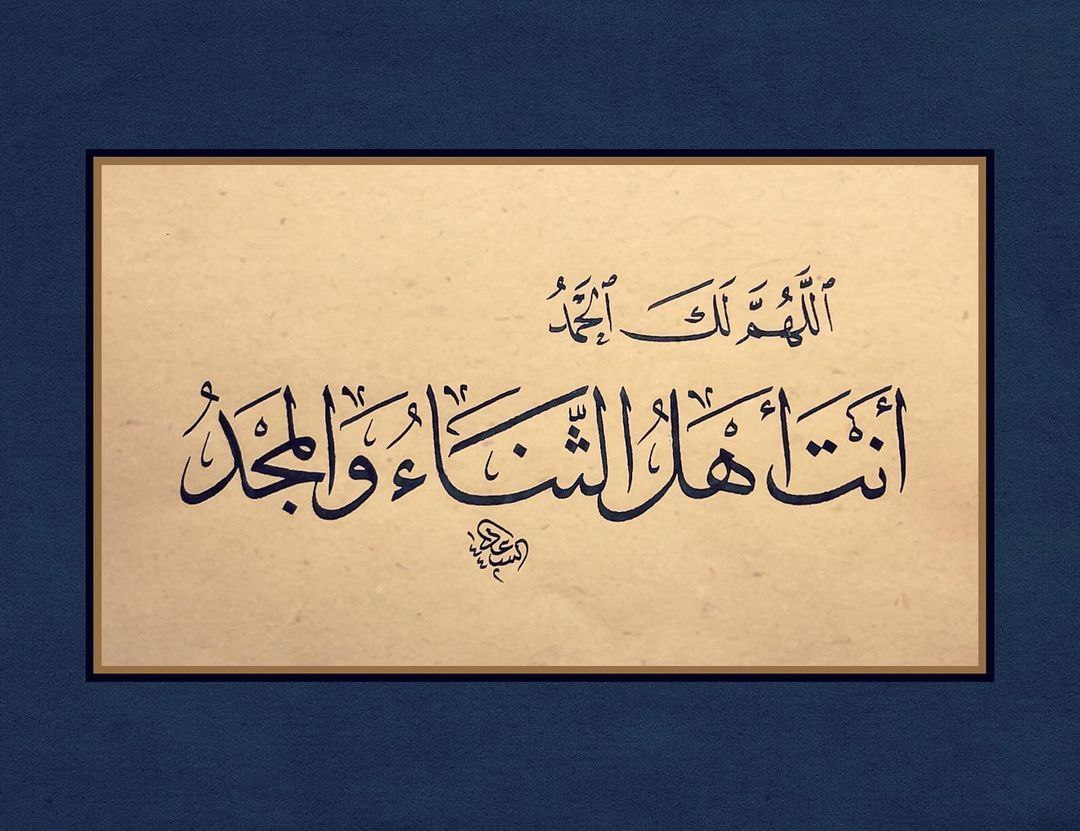 ٱللَّهُمَّ لَكَ ٱلْحَمْدُ
أَنْتَ أَهْلُ الثَّنَاءُ وَالْمَجْدُ